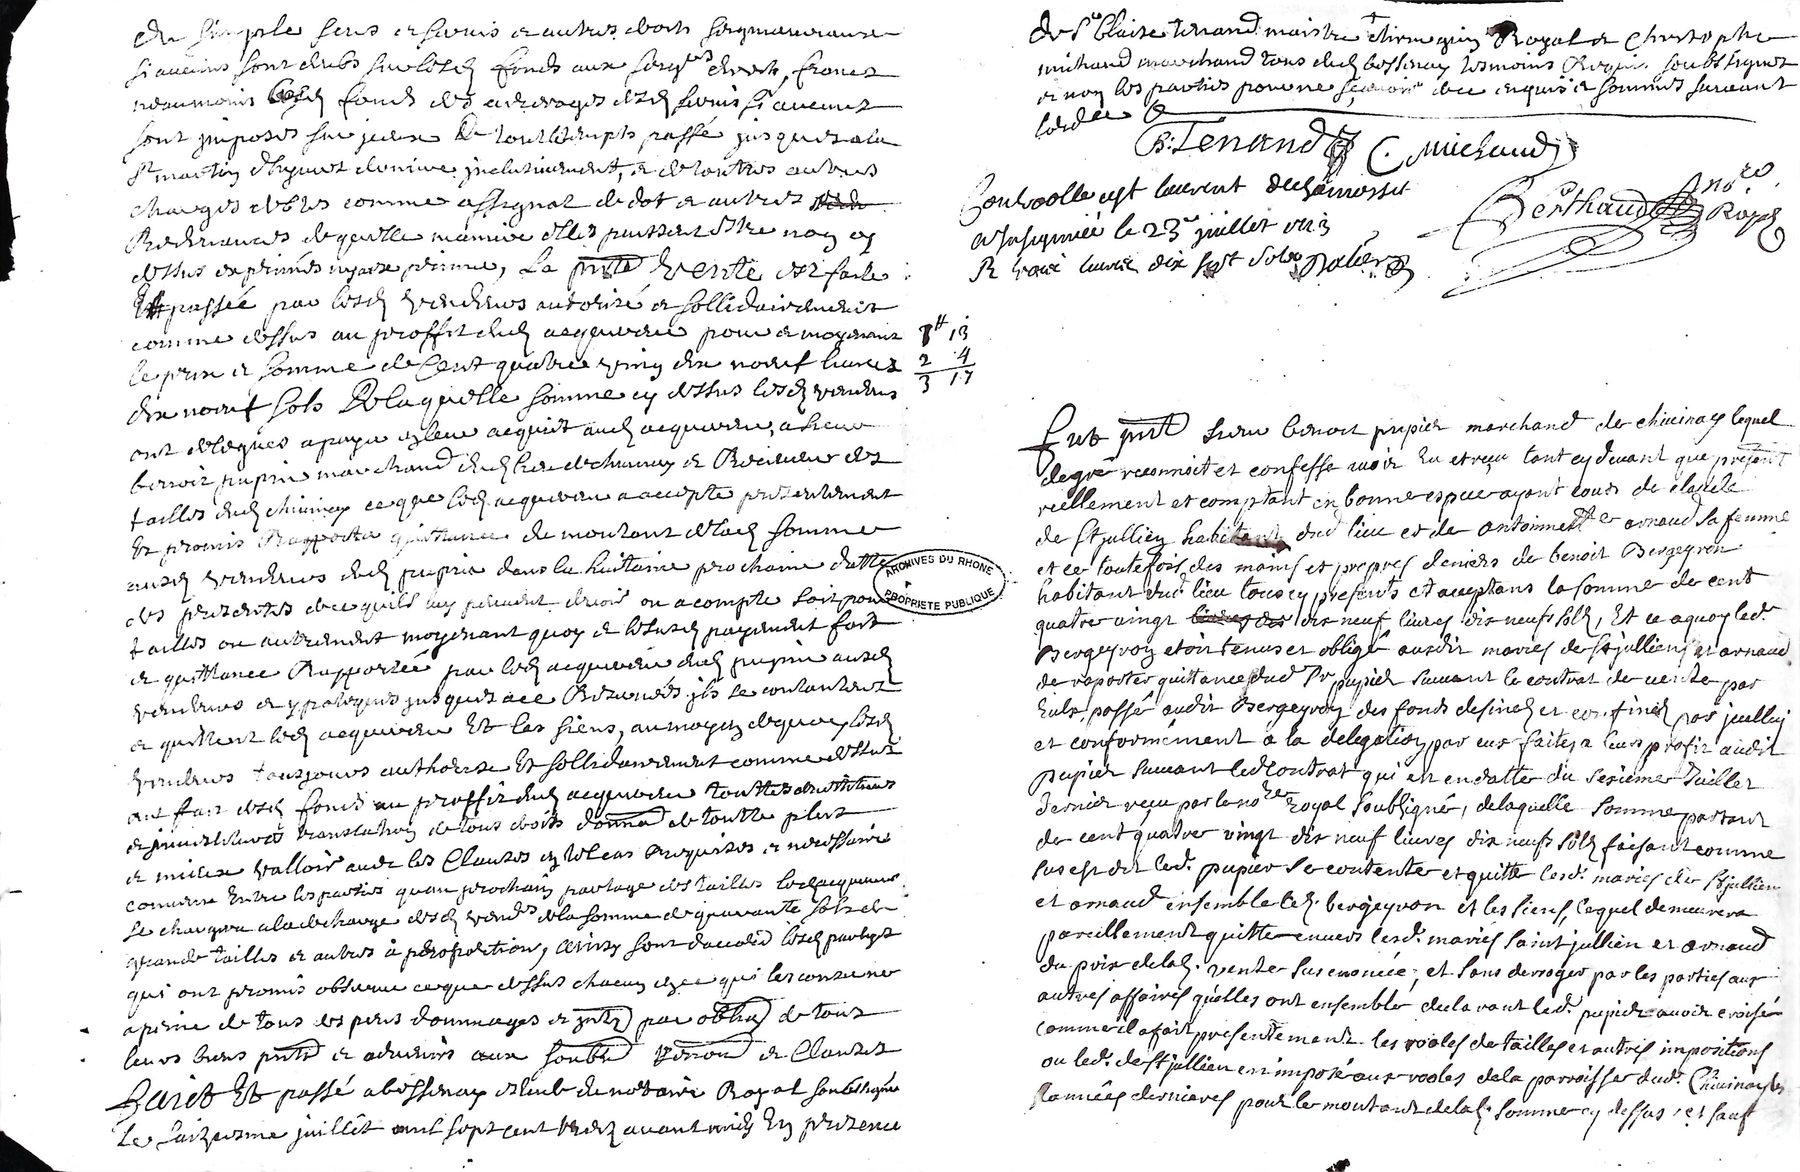 du simple sens et servis et autres droits seigneuriaux
si aucuns sont dubs sur lesd fonds aux seigrs directs, francs
neanmoins lesd fonds des arrerages desd servis si aucuns
sont imposes sur jceux de tout temps passé jusques a la
st martin d'hyvert derniere jnclusivement, et de touttes autres
charges debtes comme assignat de dot et autres
Redevances de quelle maniere elles puissent estre non cy
dessus exprimés, La pnte vente est faite
Et passée par lesd vendeurs autorisé et sollidairement
comme dessus au proffit dud acquereur pour et moyenant
le prix et somme de Cent quatre vingt dix noeuf livres
dix noeuf sols De laquelle somme cy dessus lesd vendeurs
ont delegués a payer et leur acquit aud acquereur, a sieur
benoit pupier marchand dud lieu de chivinay et Receveur des
tailles dud chivinay ce que led acquereur a accepté presentement
Et promis Rapporter quittance du montant de lad somme
ausd vendeurs dud pupier dans la huitaine prochaine datte
des presentes de ce quils luy peuvent devoir ou a compte soit pour
tailles ou autrement moyenant quoy et le susd payement fait
et quittance Rapportée par led acquereur dud pupier ausd
vendeurs et ypoteques jusques a ce Reservés jls se contentent
et quittent led acquereur Et les siens, au moyen de quoy lesd
vendeurs tousjours authorisé Et sollidairement comme dessus
ont fait desd fonds au proffit dud acquereur touttes devestitures
et jnvestitures translation de tous droits donnaon de toutte plus
et mieux vallois avec les Clauses en tel cas Requises et necessaire
convenu Entre les parties quau prochain partage des tailles led acquereur
se chargera a la decharge desd vendrs de la somme de quarante sols de
grande tailles et autres à proportion, ainsy sont d'accord lesd partyes
qui ont promis observer ce que dessus chacun en ce qui les concerne
a peine de tous despens dommages et jnts par oblig de tous
leurs biens pnts et advenirs aux soubz Renon et Clauses
Faict Et passé a bessenay estude du notaire Royal soubsigné
Le seiziesme juillet mil sept cent treize avant midy En presence
8tt 13
2 4
3 17
ARCHIVES DU RHONE
PROPRIETE PUBLIQUE
de Sr Claire tenand maistre chirurgien Royal et Christophe
michaud marchand tous dud bessenay tesmoins Requis soubsignés
et non les parties pour ne sçavoir de ce enquis et sommés suivant
lordce
B: Tenand C. Michaud
Berthaud nore Royal
Controollé est laurent
et Insignuée le 23e juillet 1713
R livre dix sept sols
Fut pnt sieur benoit pupier marchand de chivinay lequel
de gré reconnoit et confesse avoir eu et reçu tant cy devant que présent
reellement et comptant en bonne espece ayant cours de claude
de St jullien habitant dud lieu et de antoinette arnaud sa femme
et ce toutefois des mains et propres deniers de benoit Bergeyron
habitant dud lieu tous cy presents et acceptans la somme de cent
quatre vingt dix neuf livres dix neuf sols, Et ce a quoy led.
Bergeyron etoit tenu et obligé ausdit maries de St jullien et arnaud
de raporter quittance dud Sr pupier suivant le contrat de vente par
Eulx passé audit Bergeyron des fonds desinés et confinés par jcelluy
et conformément a la delegation par eux faites a leurs profit audit
pupier suivant led contrat qui est en datte du sesieme Juillet
dernier reçu par le nore royal soubsigné, de laquelle somme partant
de cent quatre vingt dix neuf livres dix neufs sols faisant comme
sus est dit led. pupier se contente et quitte lesd. maries de St jullien
et arnaud ensemble led. bergeyron et les siens, lequel demeurera
pareillement quitte envers lesd. maries saint jullien et arnaud
du prix de lad. vente sus enoncée, et sans deroger par les parties aux
autres affaires quelles ont ensemble declarant led. pupier avoir croisé
comme il a fait presentement les rooles de tailles et autres impositions
ou led. de St jullien en imposé aux rooles de la parroisse dud. Chivinay les
années dernieres pour le montant de lad. somme cy dessus et sauf